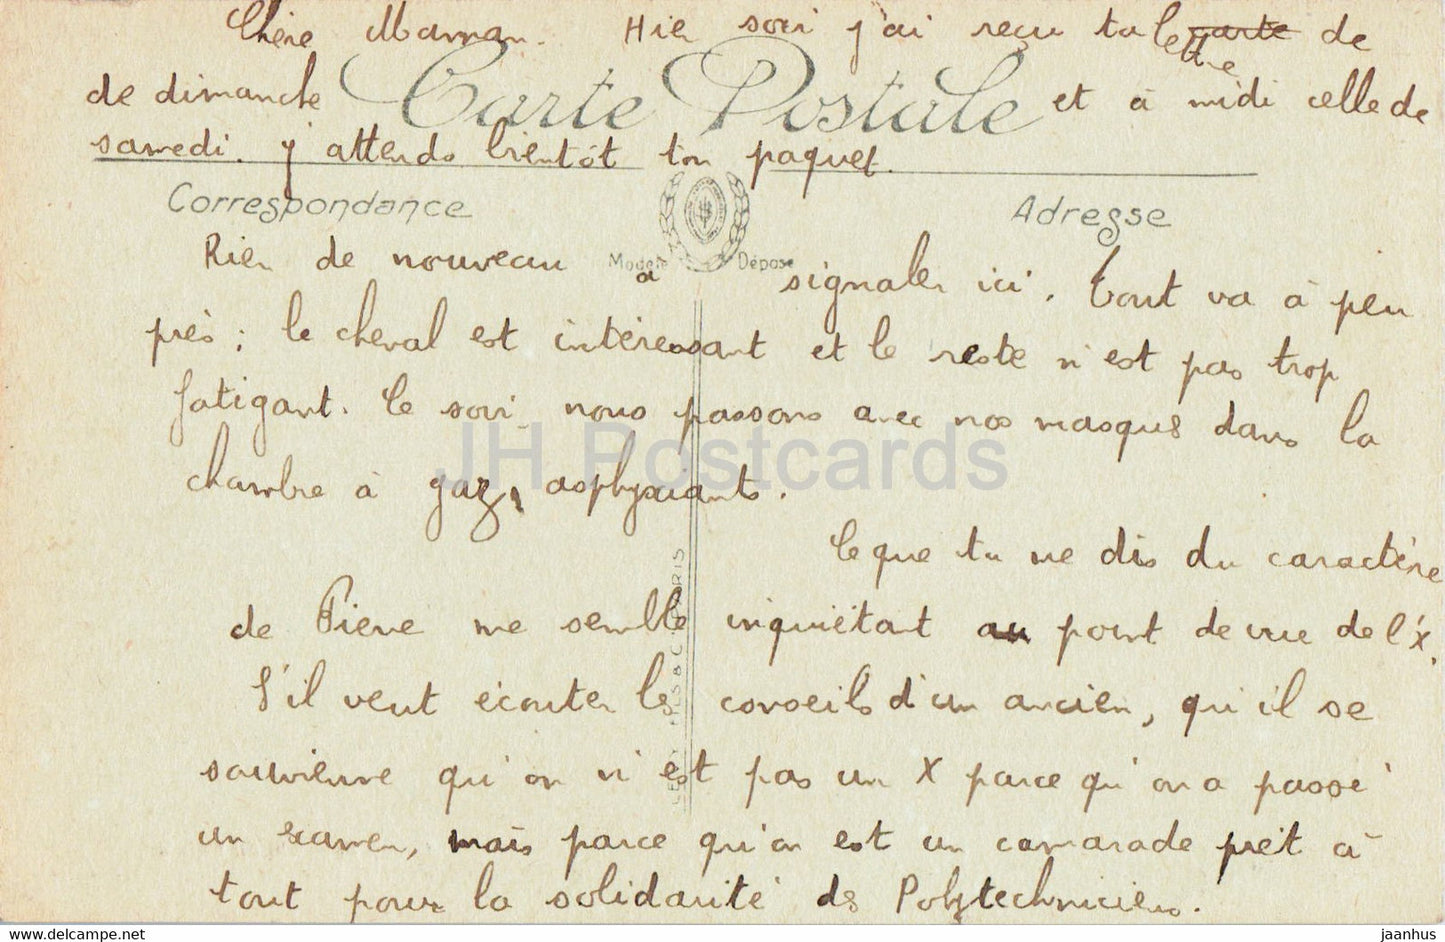 Chère Maman. Hier soir j'ai reçu ta carte lettre de
de dimanche et à midi celle de
Carte Postale
samedi. j'attends bientôt ton paquet.
Correspondance
Adresse
Modèle Déposé
Rien de nouveau à signaler ici. Tout va à peu
près ; le cheval est intéressant et le reste n'est pas trop
fatigant. Ce soir nous passons avec nos masques dans la
chambre à gaz asphyxiants.
Ce que tu me dis du caractère
de Pierre me semble inquiétant au point de vue de l'X.
S'il veut écouter les conseils d'un ancien, qu'il se
souvienne qu'on n'est pas un X parce qu'on a passé
un examen, mais parce qu'on est un camarade prêt à
tout pour la solidarité des Polytechniciens.
JH Postcards
www.delcampe.net
jaanhus